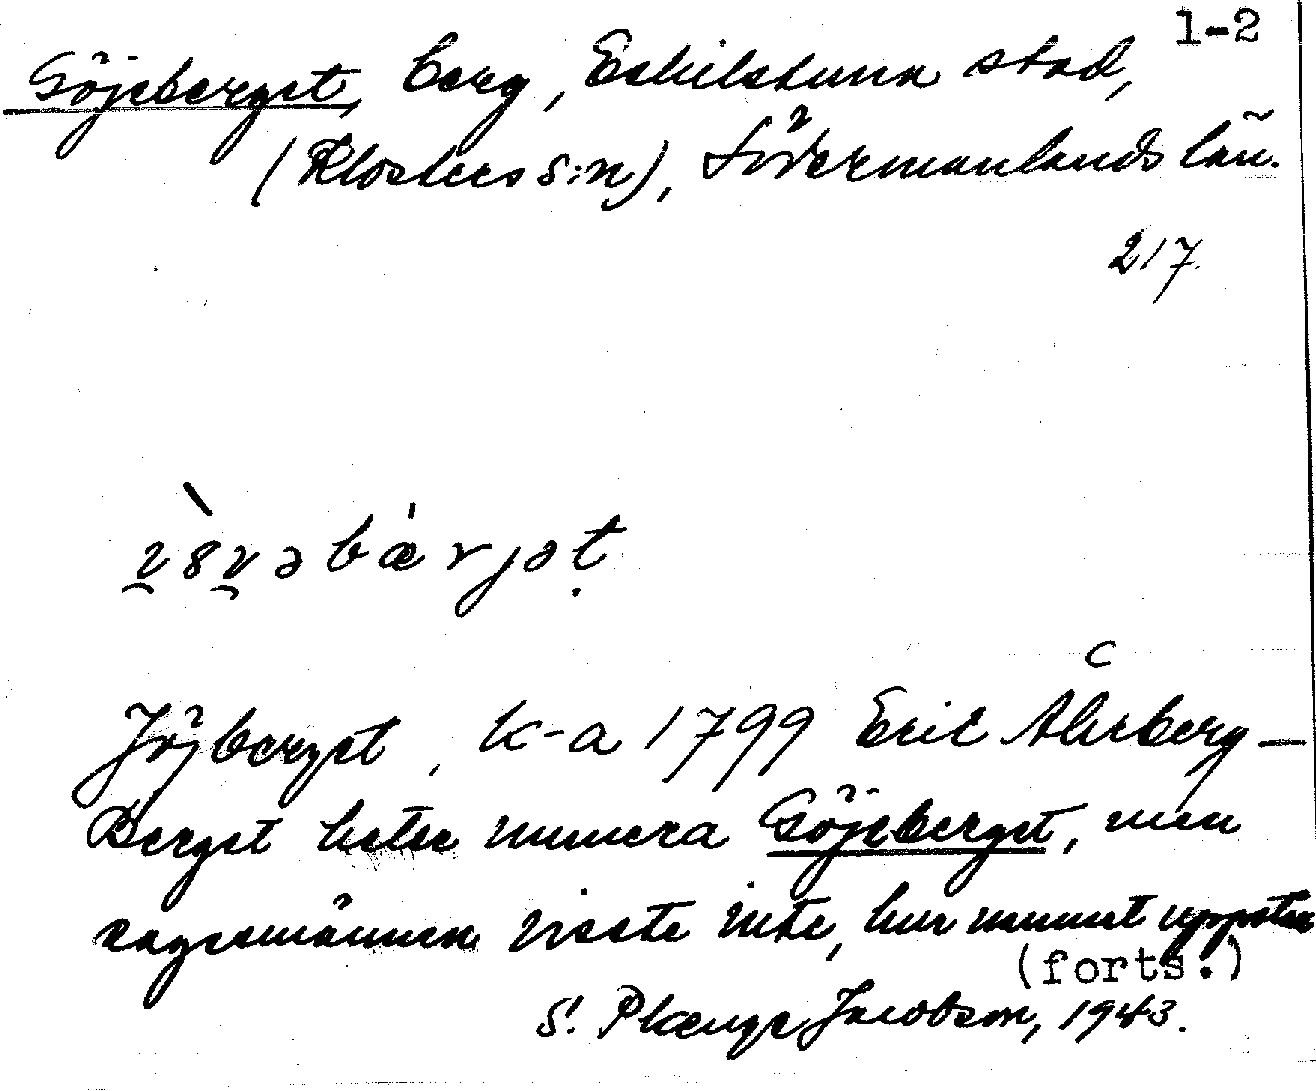 1-2
Göjeberget, berg, Eskilstuna stad,
(Klosters s:n), Södermanlands län.
217.
bærjət
c
Jöjberget, k-a 1799 Eric Åkerberg —
Berget heter numera Göjeberget, men
sagesmännen visste inte, hur namnet uppstår
(forts.)
S. Plænge Jacobson, 1943.